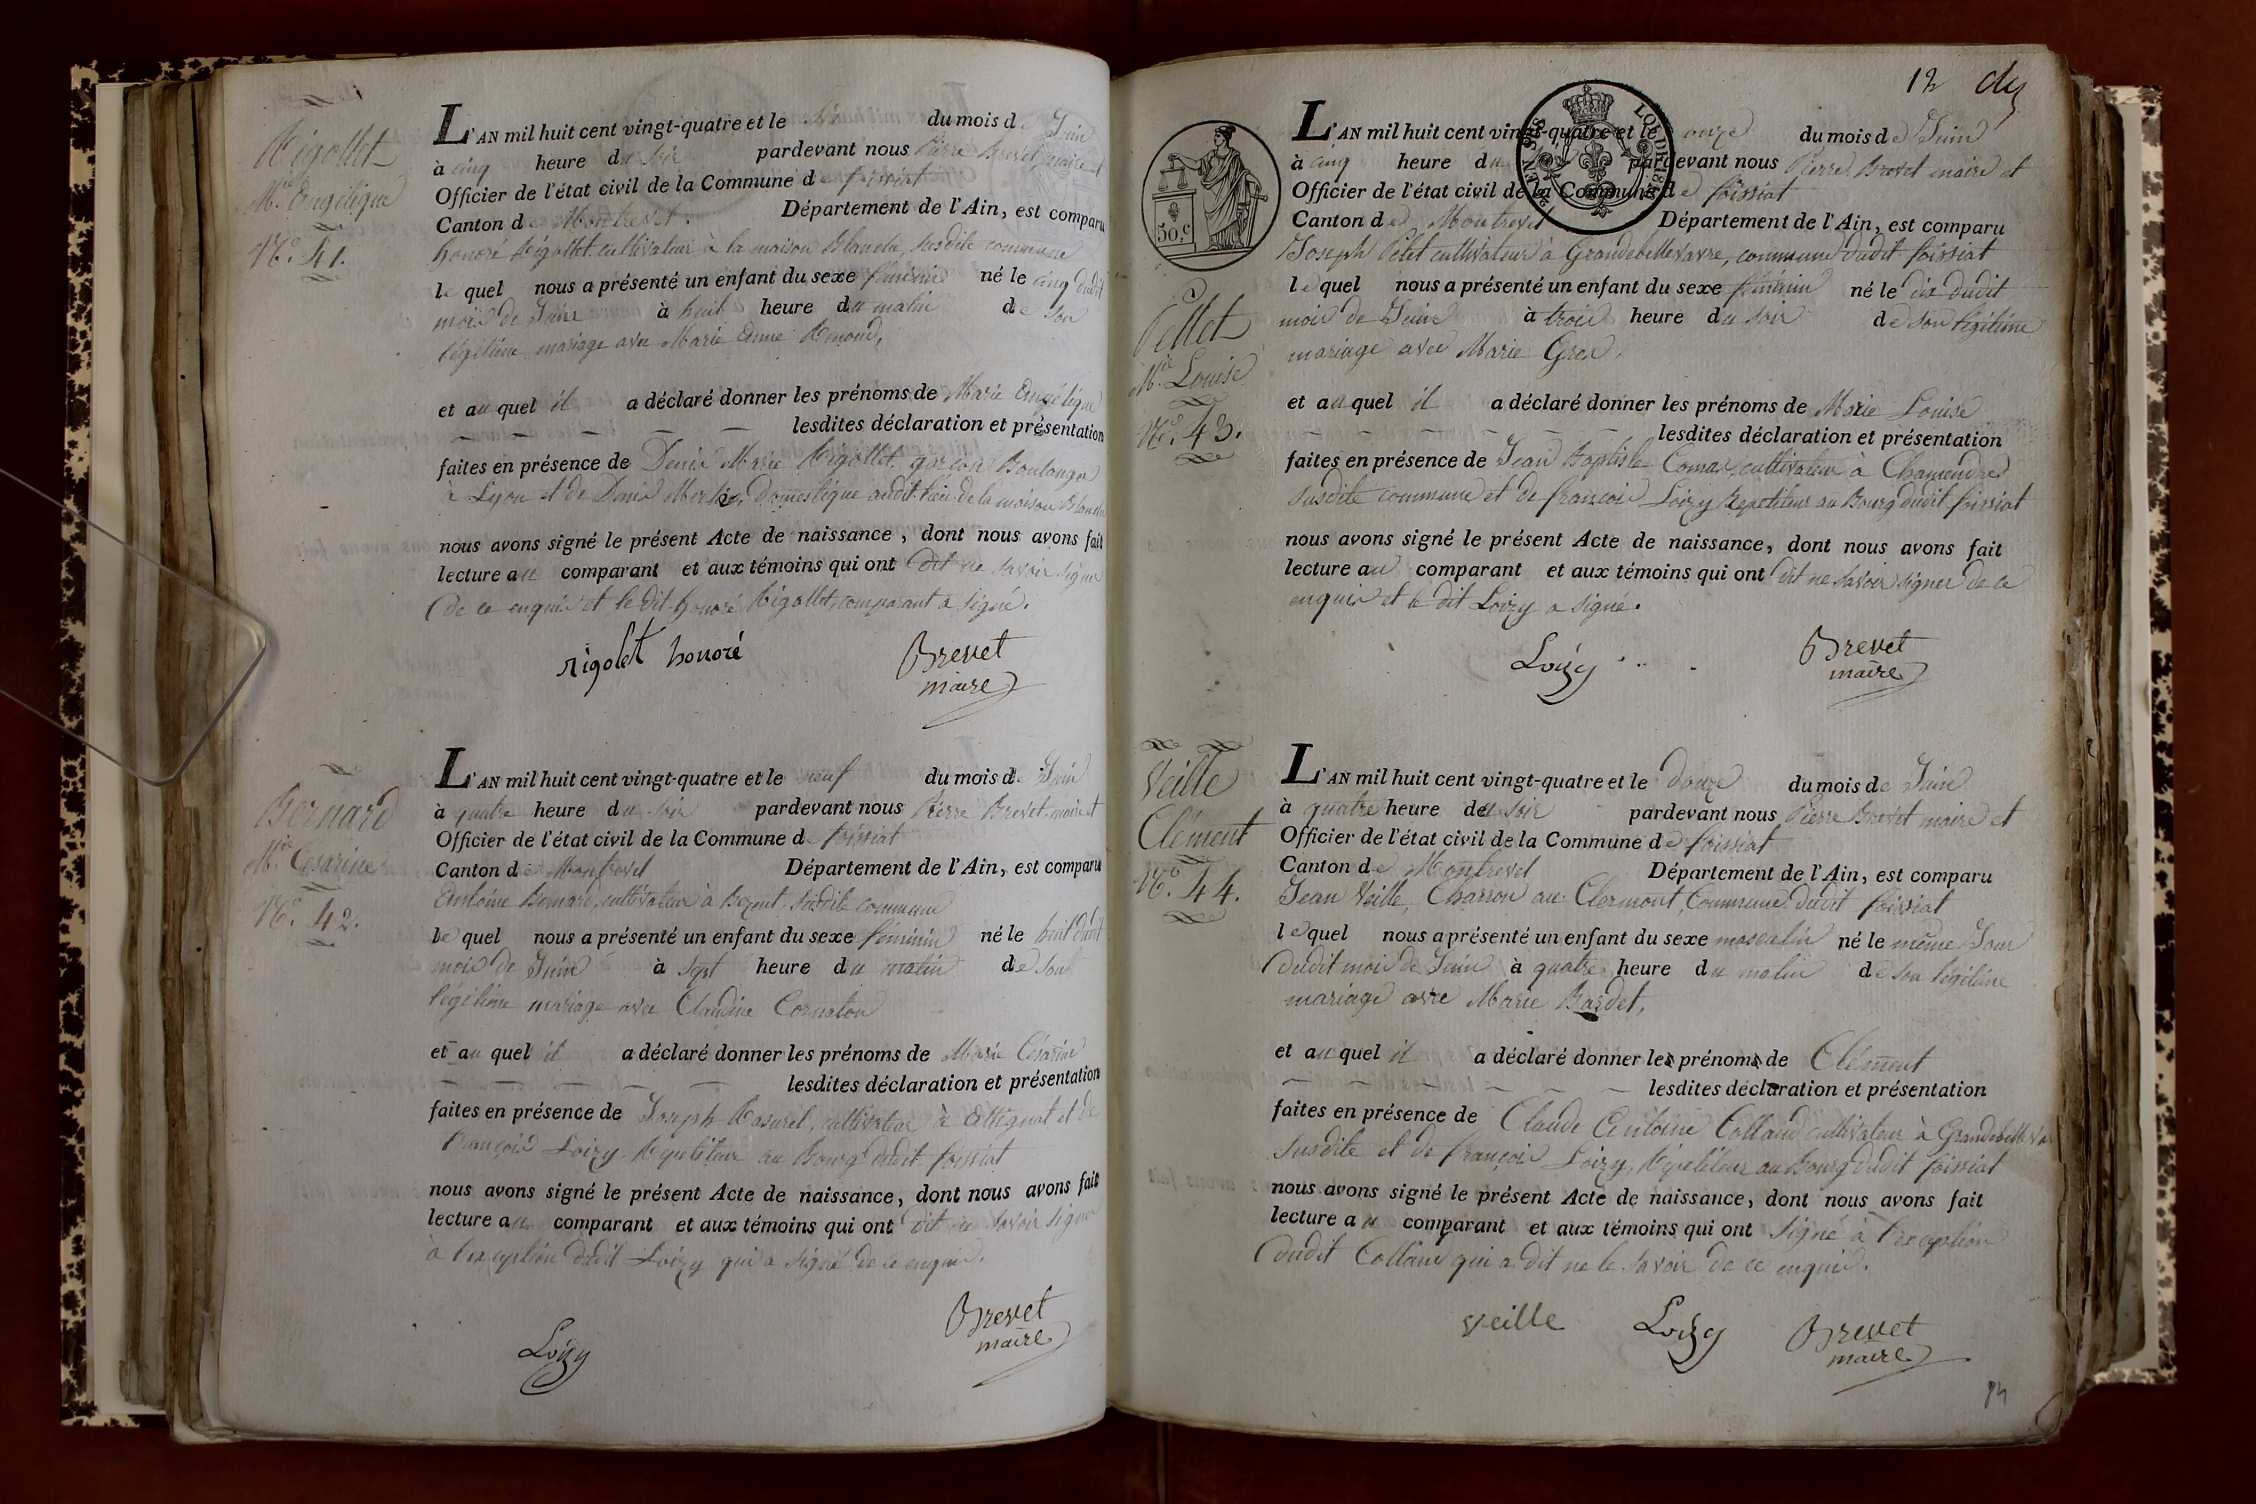 Rigollet
Mie Angélique
No. 41.
L'AN mil huit cent vingt-quatre et le six du mois de Juin
à cinq heure du soir pardevant nous Pierre Brevet maire et
Officier de l'état civil de la Commune de foissiat
Canton de Montrevel. Département de l'Ain, est comparu
honoré Rigollet cultivateur à la maison Blanche, susdite commune
le quel nous a présenté un enfant du sexe féminin né le cinq dudit
mois de Juin à huit heure du matin de son
légitime mariage avec Marie Anne Renoud,
et au quel il a déclaré donner les prénoms de Marie Angélique
lesdites déclaration et présentation
faites en présence de Denis Marie Rigollet garçon Boulanger
à Lyon et de Denis domestique audit lieu de la maison Blanche
nous avons signé le présent Acte de naissance, dont nous avons fait
lecture au comparant et aux témoins qui ont dit ne savoir signer
de ce enquis et le dit honoré Rigollet, comparant a signé.
rigolet honoré Brevet
maire
Bernard
Mie Cesarine
No. 42.
L'AN mil huit cent vingt-quatre et le neuf du mois de Juin
à quatre heure du soir pardevant nous Pierre Brevet maire et
Officier de l'état civil de la Commune de foissiat
Canton de Montrevel Département de l'Ain, est comparu
Antoine Bernard, cultivateur à susdite commune
le quel nous a présenté un enfant du sexe féminin né le huit dudit
mois de Juin à sept heure du matin de son
légitime mariage avec Claudine Cornaton
et au quel il a déclaré donner les prénoms de Marie Césarine
lesdites déclaration et présentation
faites en présence de Joseph cultivateur à Attignat et de
françois Loizy Repetiteur au Bourg dudit foissiat
nous avons signé le présent Acte de naissance, dont nous avons fait
lecture au comparant et aux témoins qui ont dit ne savoir signer
à l'exception dudit Loizy qui a signé de ce enquis.
Loizy Brevet
maire
12
50.c
Pellet
Mie Louise
No. 43.
L'AN mil huit cent vingt-quatre et le onze du mois de Juin
à cinq heure du pardevant nous Pierre Brevet maire et
Officier de l'état civil de la Commune de foissiat
Canton de Montrevel Département de l'Ain, est comparu
Joseph Pelet cultivateur à Grandebellevavre, commune dudit foissiat
le quel nous a présenté un enfant du sexe féminin né le dix dudit
mois de Juin à trois heure du soir de son légitime
mariage avec Marie Gros,
et au quel il a déclaré donner les prénoms de Marie Louise
lesdites déclaration et présentation
faites en présence de Jean Baptiste Comas cultivateur à Chamendre
susdite commune et de françois Loizy Repetiteur au Bourg dudit foissiat
nous avons signé le présent Acte de naissance, dont nous avons fait
lecture au comparant et aux témoins qui ont dit ne savoir signer de ce
enquis et le dit Loizy a signé.
Loizy Brevet
maire
Veille
Clément
No. 44.
L'AN mil huit cent vingt-quatre et le douze du mois de Juin
à quatre heure du soir pardevant nous Pierre Brevet maire et
Officier de l'état civil de la Commune de foissiat
Canton de Montrevel Département de l'Ain, est comparu
Jean Veille, Charron au Clermont, Commune dudit foissiat
le quel nous a présenté un enfant du sexe masculin né le même Jour
dudit mois de Juin à quatre heure du matin de son légitime
mariage avec Marie Bardet,
et au quel il a déclaré donner les prénoms de Clément
lesdites déclaration et présentation
faites en présence de Claude Antoine Colland cultivateur à
susdite et de françois Loizy, Repetiteur au Bourg dudit foissiat
nous avons signé le présent Acte de naissance, dont nous avons fait
lecture au comparant et aux témoins qui ont signé à l'exception
dudit Colland qui a dit ne le savoir de ce enquis.
veille Loizy Brevet
maire